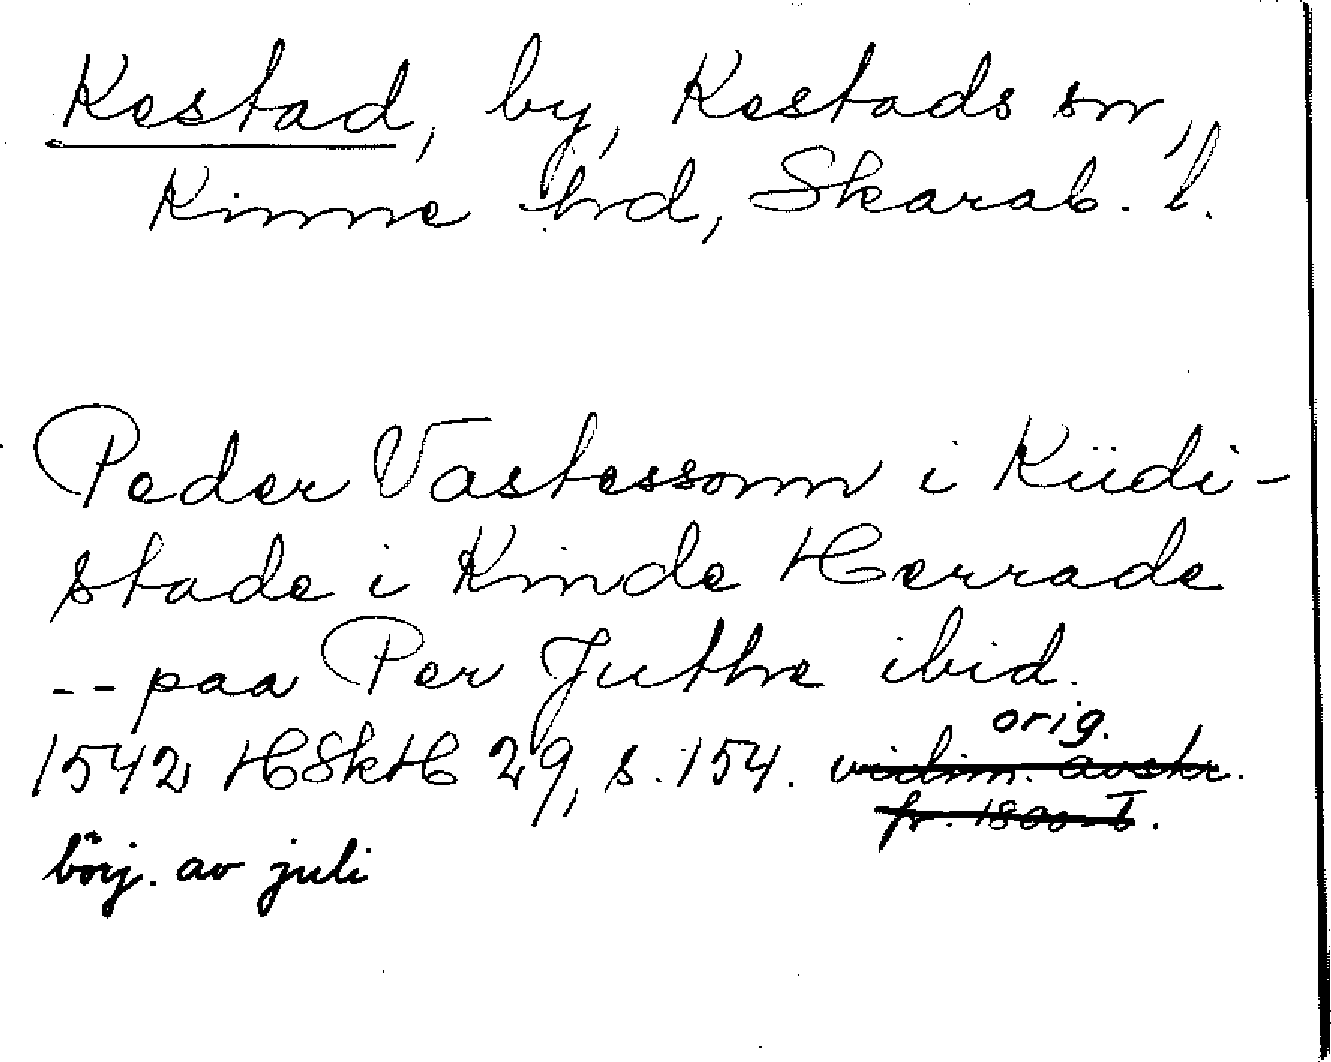 Kestad, by, Kestads sn,
Kinne hrd, Skarab. l.
Peder Vastessonn i Kiidi-
stade i Kinde Herrade
-- paa Per Juthe ibid.
orig.
1542 HSkH 29, s. 154. vidim. avskr.
fr. 1800-t.
börj. av juli